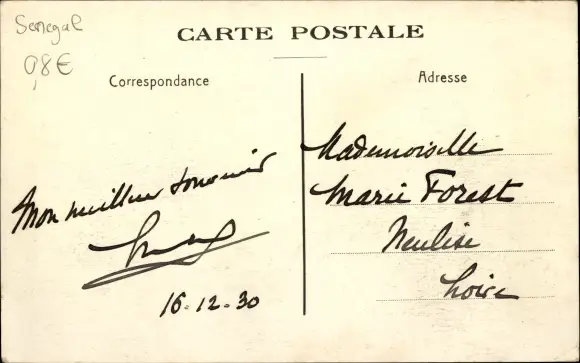 Senegal
0,8€
CARTE POSTALE
Correspondance
Adresse
Mon meilleur souvenir
16-12-30
Mademoiselle
Marie Forest
Neulise
Loire